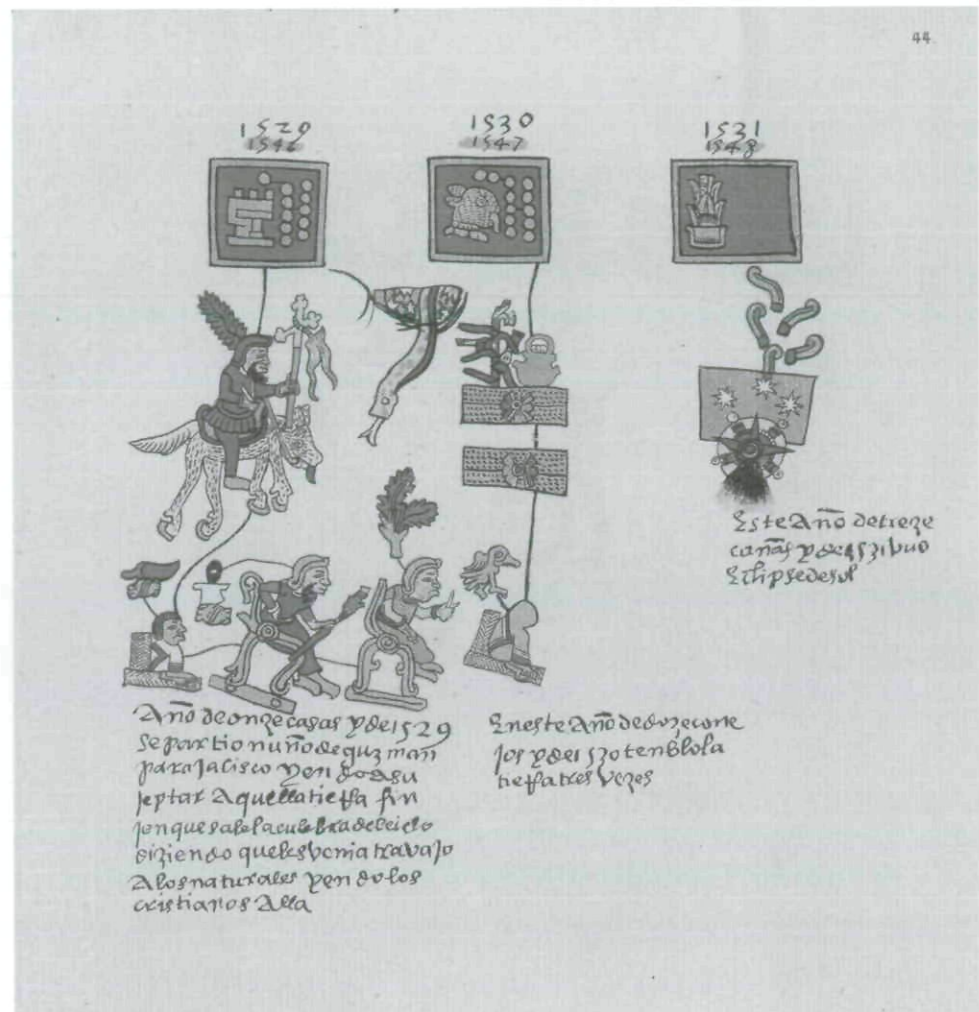 44
1529
1546
1530
1547
1531
1548
Este Año de treze
cañas y de 1531 buo
Eclipse de sol
Año de onze casas y de 1529
se partio nuño de guzman
para Jalisco yendo a su
jeptar Aquella tierra fin
jen que sale la culebra del cielo
diziendo que les venia travajo
A los naturales yendo los
cristianos Alla
En este Año de doze cone
jos y de 1530 tenblo la
tierra tres vezes